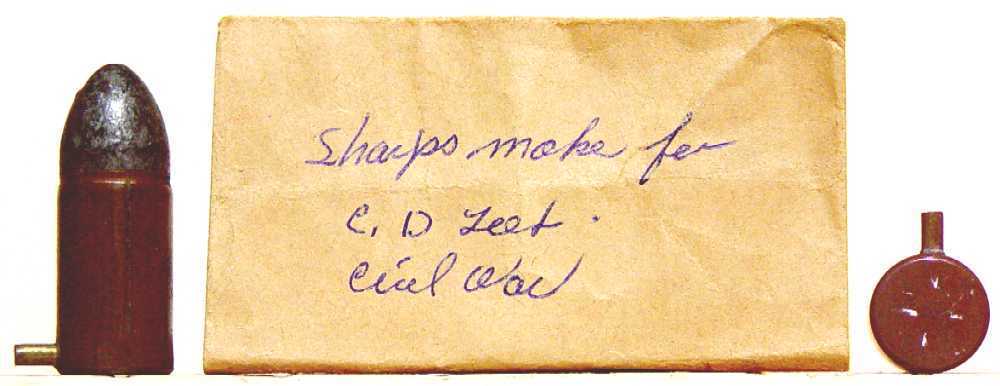 Sharps make for
C. D Leet.
Civil War